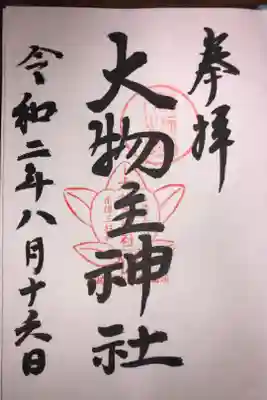 奉拝
大物主神社
令和二年八月十六日